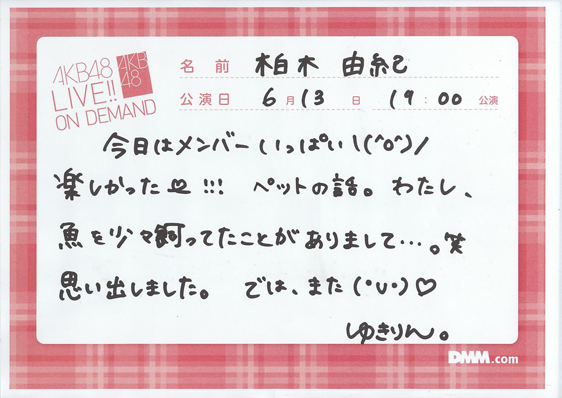 AKB48
LIVE!!
ON DEMAND
AKB
48
名前 柏木 由紀
公演日 6月13日 19:00 公演
今日はメンバーいっぱい\(^o^)/
楽しかった♡!!! ペットの話。わたし、
魚を少々飼ってたことがありまして…。笑
思い出しました。 では、また(・∪・)♡
ゆきりん。
DMM.com